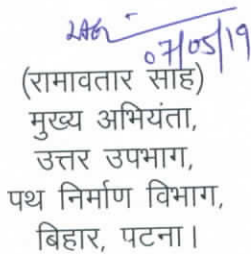 07/05/19
(रामावतार साह)
मुख्य अभियंता,
उत्तर उपभाग,
पथ निर्माण विभाग,
बिहार, पटना।